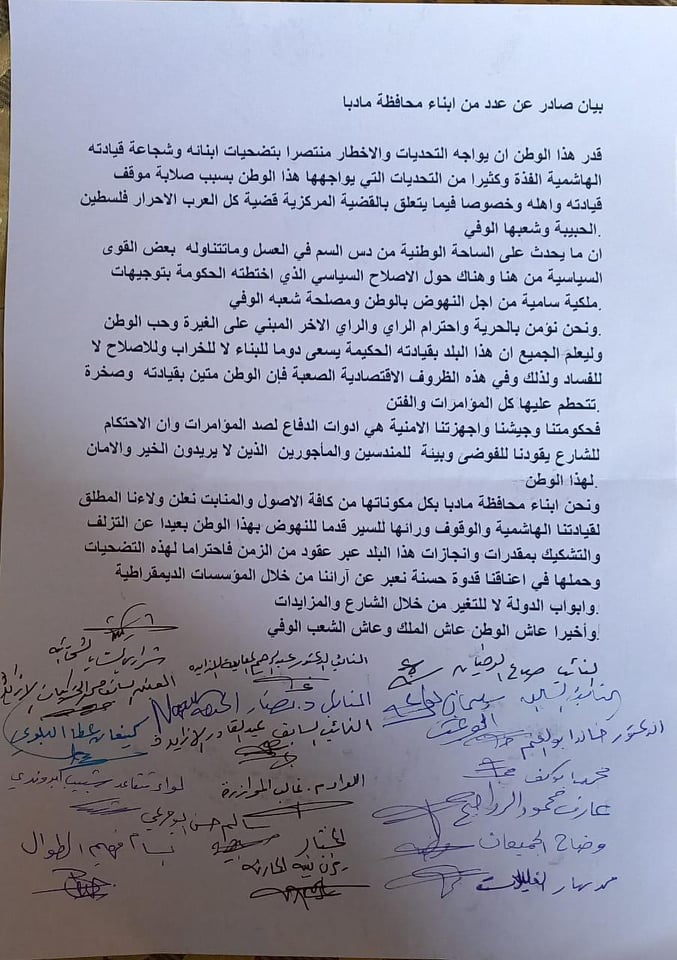 بيان صادر عن عدد من ابناء محافظة مادبا
قدر هذا الوطن ان يواجه التحديات والاخطار منتصرا بتضحيات ابنائه وشجاعة قيادته
الهاشمية الفذة وكثيرا من التحديات التي يواجهها هذا الوطن بسبب صلابة موقف
قيادته واهله وخصوصا فيما يتعلق بالقضية المركزية قضية كل العرب الاحرار فلسطين
.الحبيبة وشعبها الوفي
ان ما يحدث على الساحة الوطنية من دس السم في العسل وماتتناوله بعض القوى
السياسية من هنا وهناك حول الاصلاح السياسي الذي اختطته الحكومة بتوجيهات
.ملكية سامية من اجل النهوض بالوطن ومصلحة شعبه الوفي
.ونحن نؤمن بالحرية واحترام الراي والراي الاخر المبني على الغيرة وحب الوطن
وليعلم الجميع ان هذا البلد بقيادته الحكيمة يسعى دوما للبناء لا للخراب وللاصلاح لا
للفساد ولذلك وفي هذه الظروف الاقتصادية الصعبة فإن الوطن متين بقيادته وصخرة
.تتحطم عليها كل المؤامرات والفتن
فحكومتنا وجيشنا واجهزتنا الامنية هي ادوات الدفاع لصد المؤامرات وان الاحتكام
للشارع يقودنا للفوضى وبيئة للمندسين والمأجورين الذين لا يريدون الخير والامان
.لهذا الوطن
ونحن ابناء محافظة مادبا بكل مكوناتها من كافة الاصول والمنابت نعلن ولاءنا المطلق
لقيادتنا الهاشمية والوقوف ورائها للسير قدما للنهوض بهذا الوطن بعيدا عن التزلف
والتشكيك بمقدرات وانجازات هذا البلد عبر عقود من الزمن فاحتراما لهذه التضحيات
وحملها في اعناقنا قدوة حسنة نعبر عن آرائنا من خلال المؤسسات الديمقراطية
.وابواب الدولة لا للتغير من خلال الشارع والمزايدات
.وأخيرا عاش الوطن عاش الملك وعاش الشعب الوفي
النائب
النائب الدكتور
النائب السابق
النائب د. نصار
الدكتور خالد ابو الغنم
النائب السابق عبد القادر الازايدة
كنعان عطا البلوي
محمد
اللواء م. غالب الموازرة
لواء متقاعد شبيب ابو وندي
عارف محمود الرواجيح
سالم حسن
وضاح الجميعان
المختار
بسام فهيم الطوال
محمد نهار